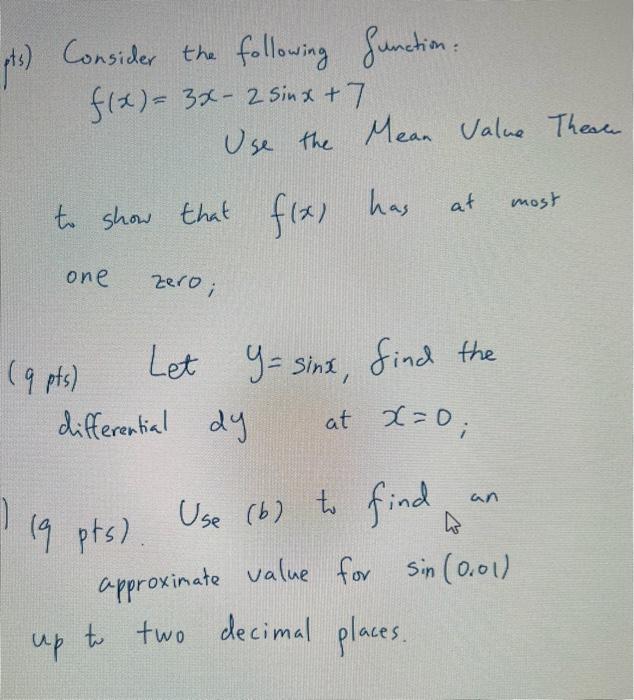 pts) Consider the following function:
f(x) = 3x - 2 sin x + 7
Use the Mean Value
to show that f(x) has at most
one zero;
(9 pts) Let y = sinx, find the
differential dy at x = 0;
) (9 pts). Use (b) to find an
approximate value for sin (0.01)
up to two decimal places.